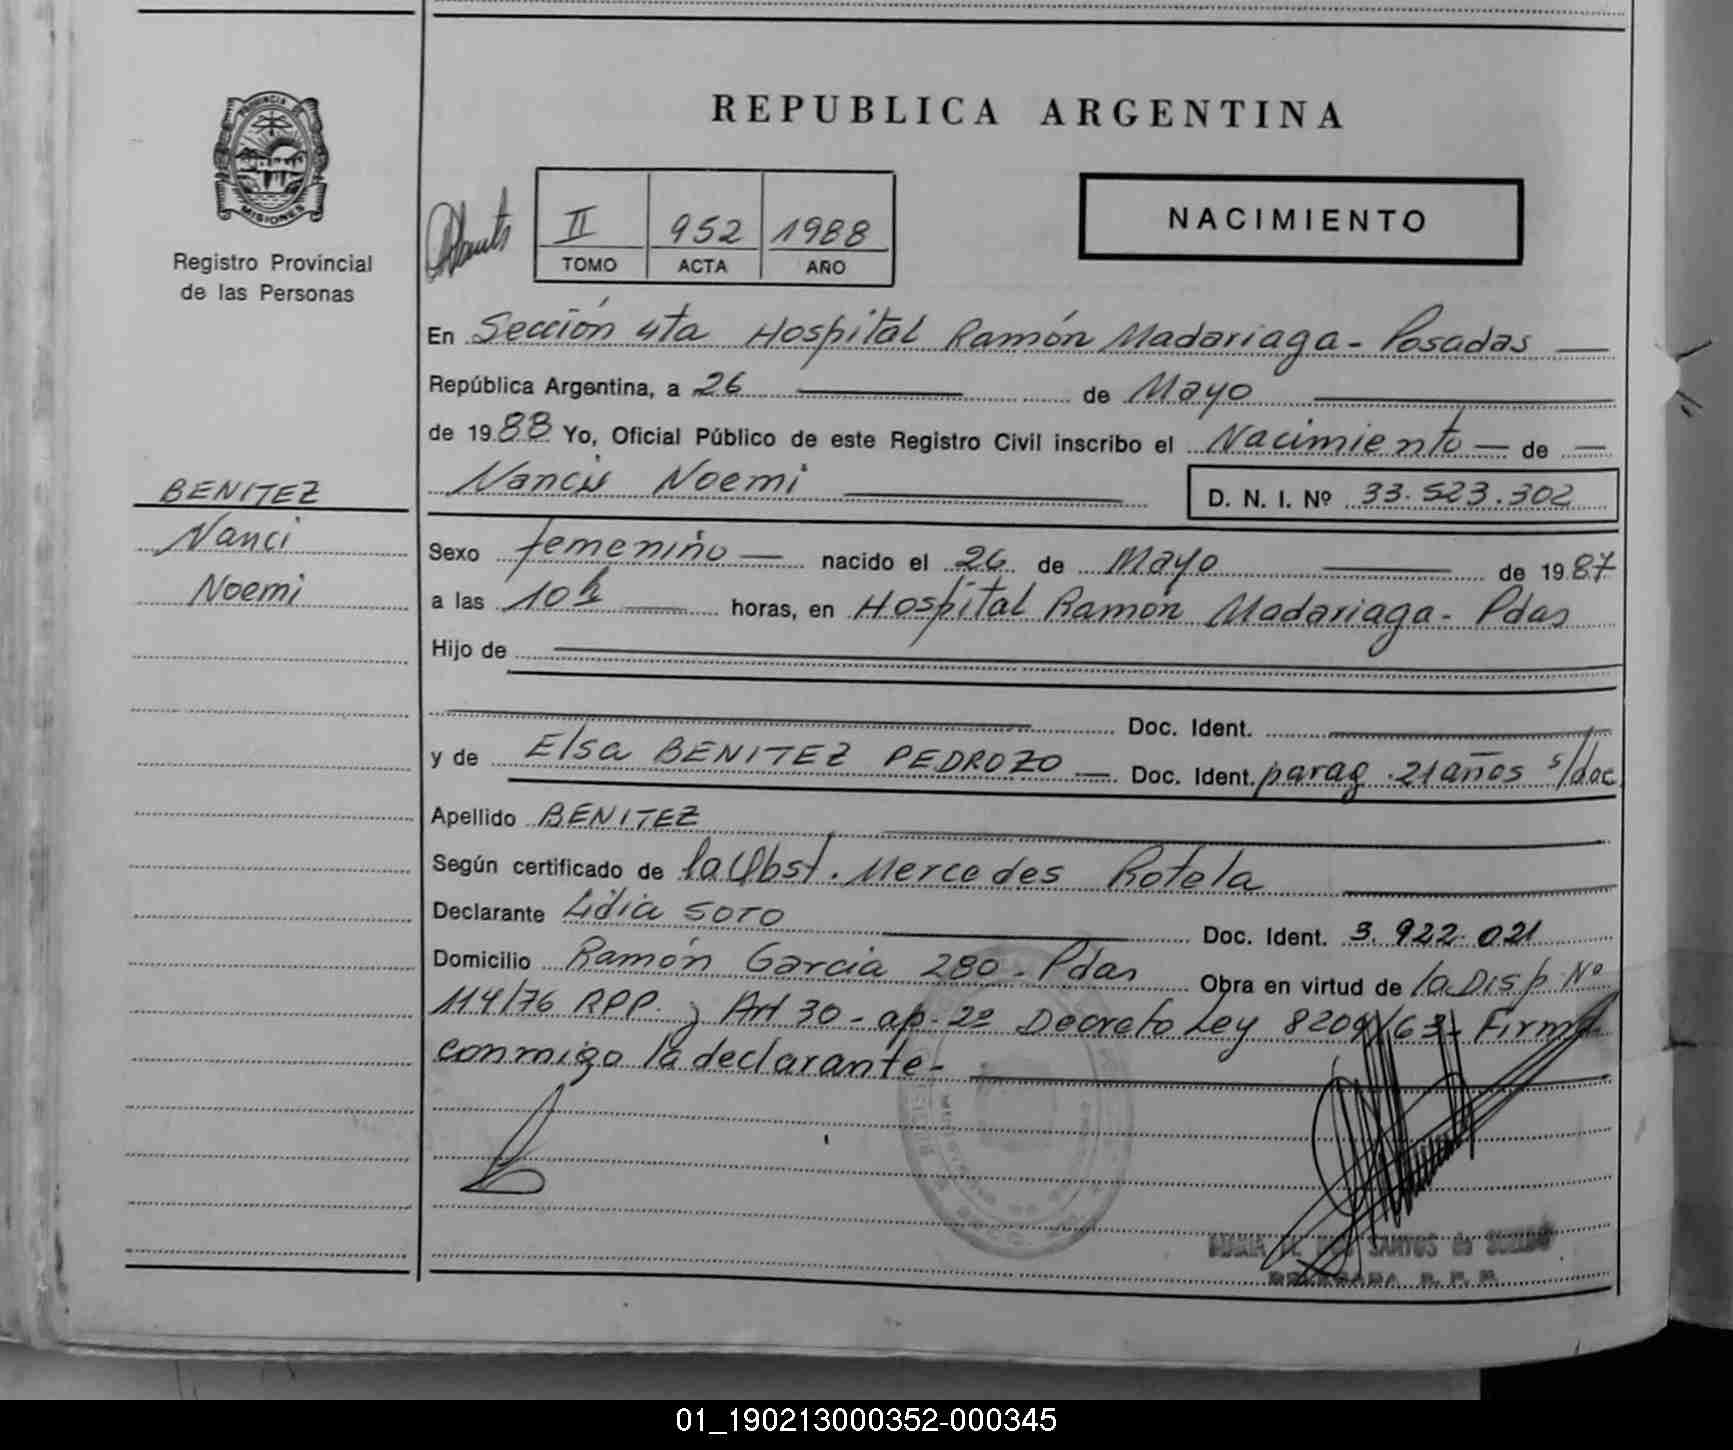 REPUBLICA ARGENTINA
PROVINCIA DE
MISIONES
Registro Provincial
de las Personas
II 952 1988
TOMO ACTA AÑO
NACIMIENTO
En Sección 4ta Hospital Ramón Madariaga - Posadas
República Argentina, a 26 de Mayo
de 1988 Yo, Oficial Público de este Registro Civil inscribo el Nacimiento de
Noemi D. N. I. Nº 33.523.302
BENITEZ
Nanci
Noemi
Sexo femenino nacido el 26 de Mayo de 1987
a las 10 h horas, en Hospital Ramón Madariaga - Pdas
Hijo de
Doc. Ident.
y de Elsa BENITEZ PEDROZO Doc. Ident. parag. 21 años s/doc
Apellido BENITEZ
Según certificado de la Obst. Mercedes Rotela
Declarante Lidia SOTO Doc. Ident. 3.922.021
Domicilio Ramón Garcia 280 - Pdas Obra en virtud de la Disp Nº
114/76 RPP. y Art 30 - ap. 2º Decreto Ley 8204/63 - Firma
conmigo la declarante -
SANTOS de
01_190213000352-000345